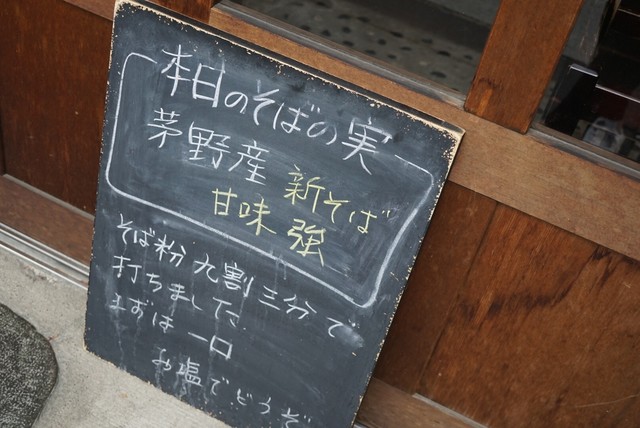 本日のそばの実
茅野産 新そば
甘味 強
そば粉 九割三分で
打ちました
まずは 一口
お塩でどうぞ